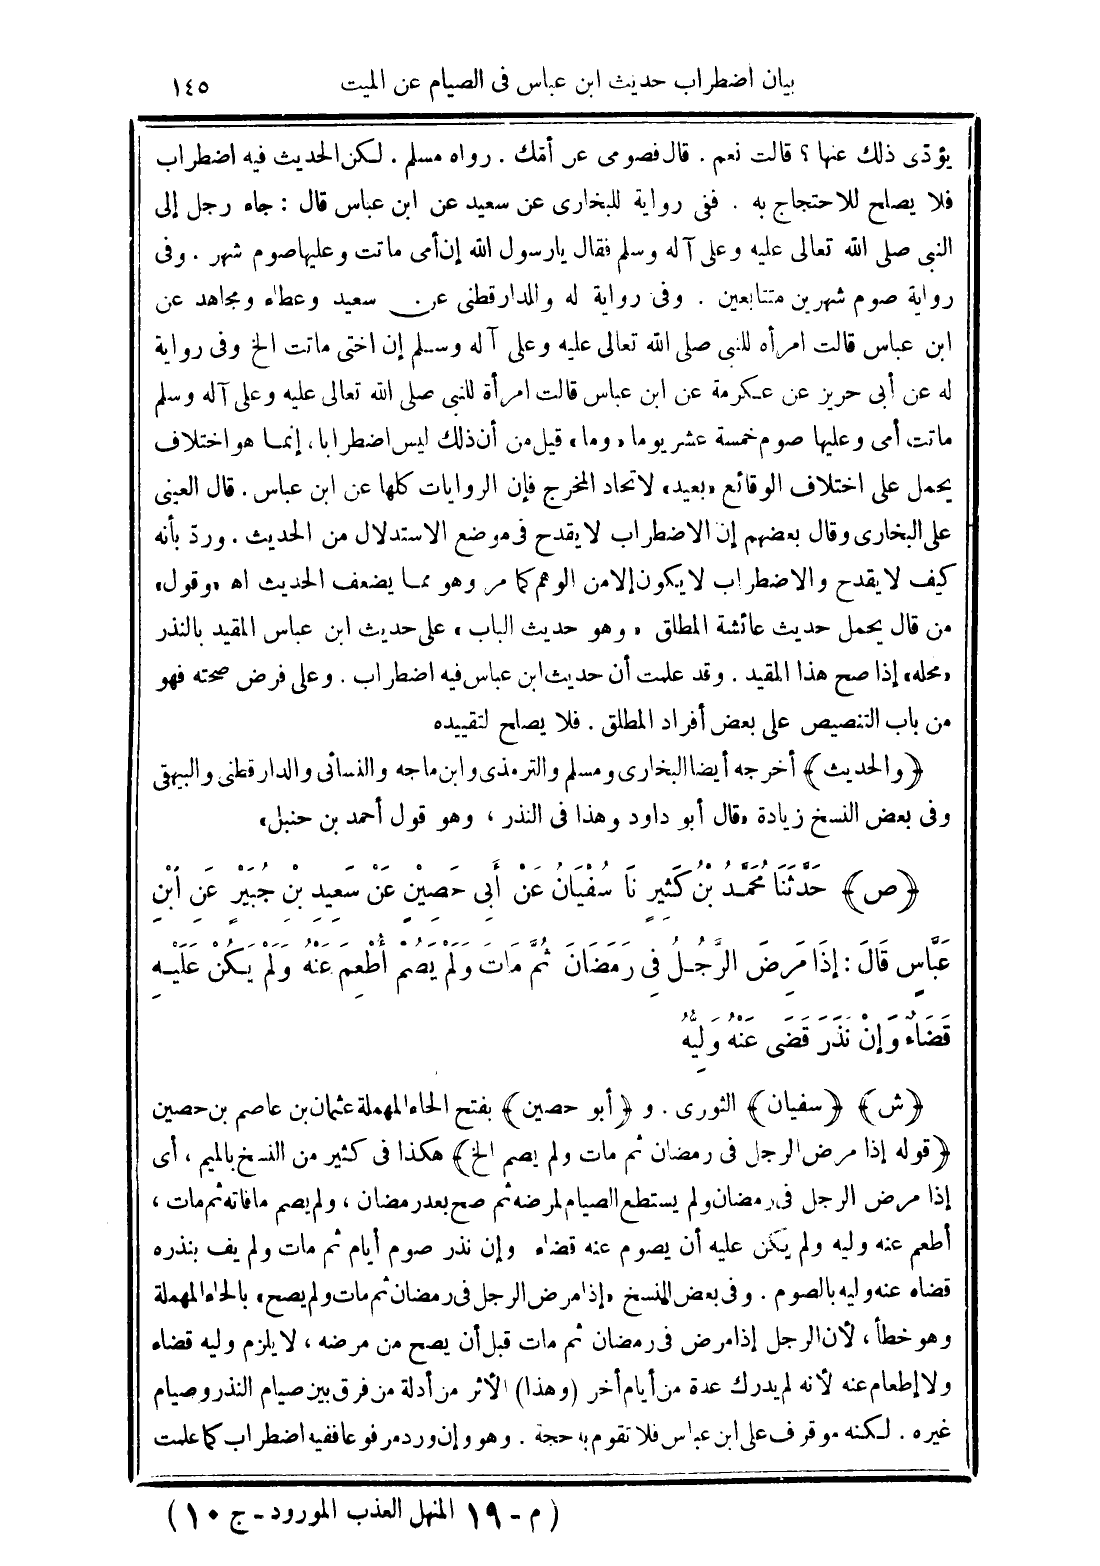 بيان اضطراب حديث ابن عباس فى الصيام عن الميت ١٤٥
يؤدّى ذلك عنها ؟ قالت نعم . قال فصومى عن أمّك . رواه مسلم . لكن الحديث فيه اضطراب
فلا يصلح للاحتجاج به . ففى رواية للبخارى عن سعيد عن ابن عباس قال : جاء رجل إلى
النبى صلى الله تعالى عليه وعلى آله وسلم فقال يارسول الله إن أمى ماتت وعليها صوم شهر . وفى
رواية صوم شهرين متتابعين . وفى رواية له والدارقطنى عن سعيد وعطاء ومجاهد عن
ابن عباس قالت امرأه للنبى صلى الله تعالى عليه وعلى آله وسلم إن اختى ماتت الخ وفى رواية
له عن أبى حريز عن عكرمة عن ابن عباس قالت امرأة للنبى صلى الله تعالى عليه وعلى آله وسلم
ماتت أمى وعليها صوم خمسة عشر يوما «وما» قيل من أن ذلك ليس اضطرابا ، إنما هو اختلاف
يحمل على اختلاف الوقائع «بعيد» لاتحاد المخرج فإن الروايات كلها عن ابن عباس . قال العينى
على البخارى وقال بعضهم إن الاضطراب لايقدح فى موضع الاستدلال من الحديث . وردّ بأنه
كيف لا يقدح والاضطراب لا يكون إلا من الوهم كما مر وهو مما يضعف الحديث اه «وقول»
من قال يحمل حديث عائشة المطلق «وهو حديث الباب» على حديث ابن عباس المقيد بالنذر
«محله» إذا صح هذا المقيد . وقد علمت أن حديث ابن عباس فيه اضطراب . وعلى فرض صحته فهو
من باب التنصيص على بعض أفراد المطلق . فلا يصلح لتقييده
﴿والحديث﴾ أخرجه أيضا البخارى ومسلم والترمذى وابن ماجه والنسائى والدارقطنى والبيهقى
وفى بعض النسخ زيادة «قال أبو داود وهذا فى النذر ، وهو قول أحمد بن حنبل»
﴿ص﴾ حَدَّثَنَا مُحَمَّدُ بْنُ كَثِيرٍ نَا سُفْيَانُ عَنْ أَبِى حَصِيْنٍ عَنْ سَعِيدِ بْنِ جُبَيْرٍ عَنِ ابْنِ
عَبَّاسٍ قَالَ : إِذَا مَرِضَ الرَّجُلُ فِى رَمَضَانَ ثُمَّ مَاتَ وَلَمْ يَصُمْ أُطْعِمَ عَنْهُ وَلَمْ يَكُنْ عَلَيْهِ
قَضَاءٌ وَإِنْ نَذَرَ قَضَى عَنْهُ وَلِيُّهُ
﴿ش﴾ ﴿سفيان﴾ الثورى . و ﴿أبو حصين﴾ بفتح الحاء المهملة عثمان بن عاصم بن حصين
﴿قوله إذا مرض الرجل فى رمضان ثم مات ولم يصم الخ﴾ هكذا فى كثير من النسخ بالميم ، أى
إذا مرض الرجل فى رمضان ولم يستطع الصيام لمرضه ثم صح بعد رمضان ، ولم يصم مافاته ثم مات ،
أطعم عنه وليه ولم يكن عليه أن يصوم عنه قضاء وإن نذر صوم أيام ثم مات ولم يف بنذره
قضاه عنه وليه بالصوم . وفى بعض النسخ «إذا مرض الرجل فى رمضان ثم مات ولم يصح» بالحاء المهملة
وهو خطأ ، لأن الرجل إذا مرض فى رمضان ثم مات قبل أن يصح من مرضه ، لا يلزم وليه قضاء
ولا إطعام عنه لأنه لم يدرك عدة من أيام أخر (وهذا) الأثر من أدلة من فرق بين صيام النذر وصيام
غيره . لكنه موقوف على ابن عباس فلا تقوم به حجة . وهو وإن ورد مرفوعا ففيه اضطراب كما علمت
( م - ١٩ المنهل العذب المورود - ج ١٠ )